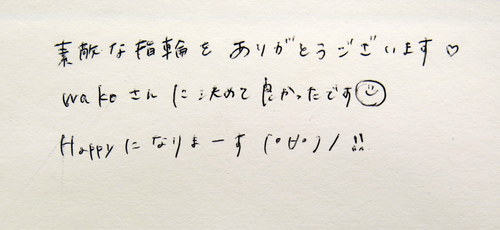 素敵な指輪を ありがとうございます♡
wakoさんに決めて良かったです☺
Happyになりまーす (°∀°)/ !!